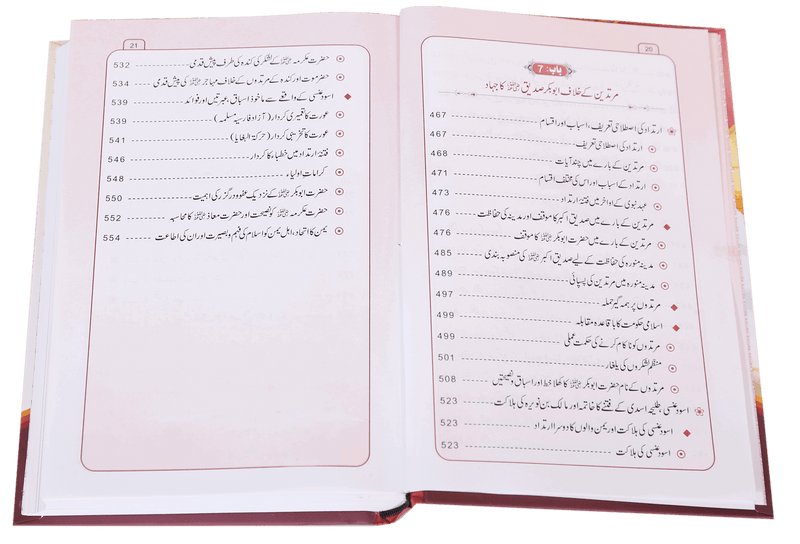 20
باب: 7
مرتدین کے خلاف ابوبکر صدیق رضی اللہ عنہ کا جہاد
ارتداد کی اصطلاحی تعریف، اسباب اور اقسام 467
ارتداد کی اصطلاحی تعریف 467
مرتدین کے بارے میں چند آیات 468
ارتداد کے اسباب اور اس کی مختلف اقسام 471
عہد نبوی کے اواخر میں فتنۂ ارتداد 473
مرتدین کے بارے میں صدیق اکبر کا موقف اور مدینہ کی حفاظت 476
مرتدین کے بارے میں حضرت ابوبکر رضی اللہ عنہ کا موقف 476
مدینہ منورہ کی حفاظت کے لیے صدیق اکبر رضی اللہ عنہ کی منصوبہ بندی 485
مدینہ منورہ میں مرتدین کی پسپائی 489
مرتدوں پر ہمہ گیر حملہ 497
اسلامی حکومت کا باقاعدہ مقابلہ 499
مرتدوں کو ناکام کرنے کی حکمت عملی 499
منظم لشکروں کی یلغار 501
مرتدوں کے نام حضرت ابوبکر رضی اللہ عنہ کا کھلا خط اور اسباق و نصیحتیں 508
اسود عنسی، طلیحہ اسدی کے فتنے کا خاتمہ اور مالک بن نویرہ کی ہلاکت 523
اسود عنسی کی ہلاکت اور یمن والوں کا دوسرا ارتداد 523
اسود عنسی کی ہلاکت 523
21
حضرت عکرمہ رضی اللہ عنہ کے لشکر کی کندہ کی طرف پیش قدمی 532
حضرموت اور کندہ کے مرتدوں کے خلاف مہاجر رضی اللہ عنہ کی پیش قدمی 534
اسود عنسی کے واقعے سے ماخوذ اسباق، عبرتیں اور فوائد 539
عورت کا تعمیری کردار (آزاد فارسیہ مسلمہ) 539
عورت کا تخریبی کردار (حرکۃ البغایا) 541
فتنۂ ارتداد میں خطباء کا کردار 546
کراماتِ اولیاء 548
حضرت ابوبکر رضی اللہ عنہ کے نزدیک عفو و درگزر کی اہمیت 550
حضرت عکرمہ رضی اللہ عنہ کو نصیحت اور حضرت معاذ رضی اللہ عنہ کا محاسبہ 552
یمن کا اتحاد، اہل یمن کو اسلام کی فہم و بصیرت اور ان کی اطاعت 554